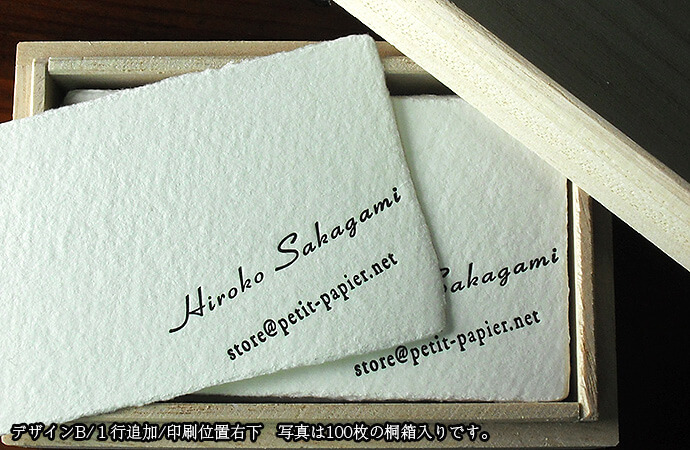 Hiroko Sakagami
store@petit-papier.net
Sakagami
store@petit-papier.net
デザインB/１行追加/印刷位置右下　写真は100枚の桐箱入りです。